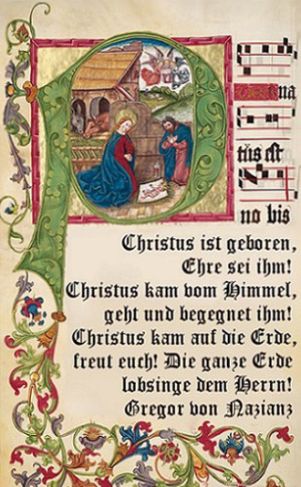 P na
tus est
no bis
Christus ist geboren,
Ehre sei ihm!
Christus kam vom Himmel,
geht und begegnet ihm!
Christus kam auf die Erde,
freut euch! Die ganze Erde
lobsinge dem Herrn!
Gregor von Nazianz